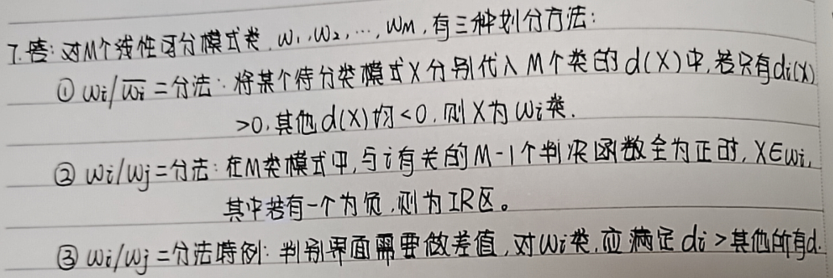 7.答:对M个线性可分模式类,ω₁,ω₂,…,ωM,有三种划分方法:
① ωi/ω̅i̅二分法:将某个待分类模式X分别代入M个类的d(X)中,若只有di(X)
>0,其他d(X)均<0,则X为ωi类.
② ωi/ωj二分法:在M类模式中,与i有关的M-1个判决函数全为正时,X∈ωi,
其中若有一个为负,则为IR区。
③ ωi/ωj二分法特例:判别界面需要做差值,对ωi类,应满足di>其他所有d.